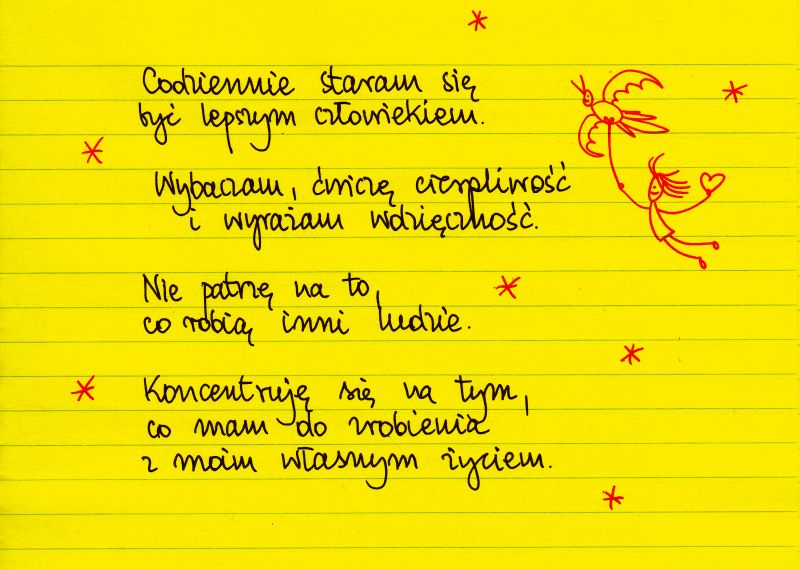 Codziennie staram się
być lepszym człowiekiem.
Wybaczam, ćwiczę cierpliwość
i wyrażam wdzięczność.
Nie patrzę na to,
co robią inni ludzie.
Koncentruję się na tym,
co mam do zrobienia
z moim własnym życiem.